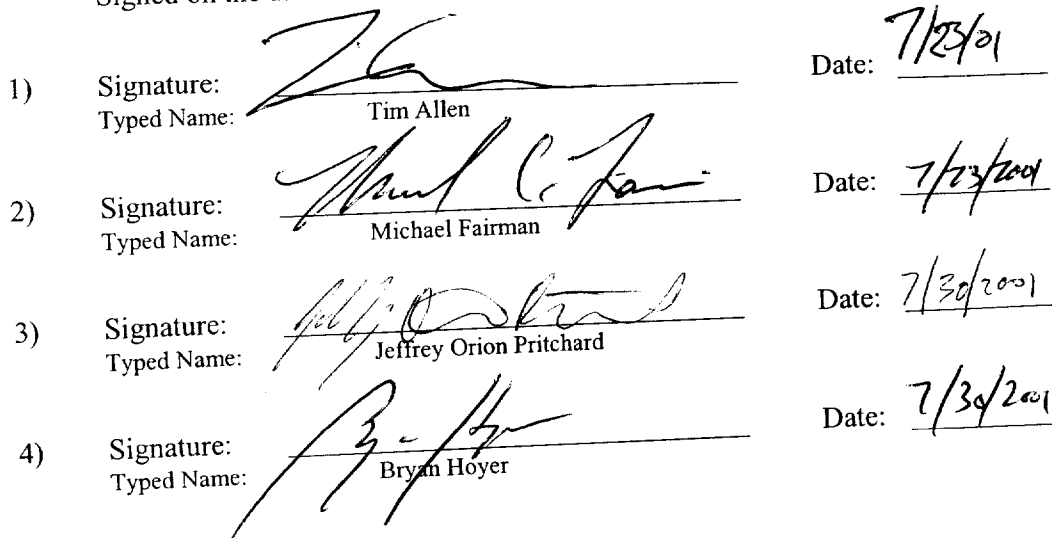 Signed on the
1) Signature: Date: 7/23/01
Typed Name: Tim Allen
2) Signature: Michael C. Fairman Date: 7/23/2001
Typed Name: Michael Fairman
3) Signature: Date: 7/30/2001
Typed Name: Jeffrey Orion Pritchard
4) Signature: Date: 7/30/2001
Typed Name: Bryan Hoyer